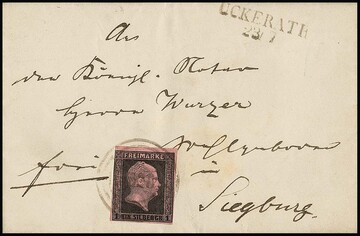 UCKERATH
23/7
An
den Königl. Notar
Herrn Wurzer
Wohlgeboren
frei
in
Siegburg.
FREIMARKE
1 SILBERGR. 1